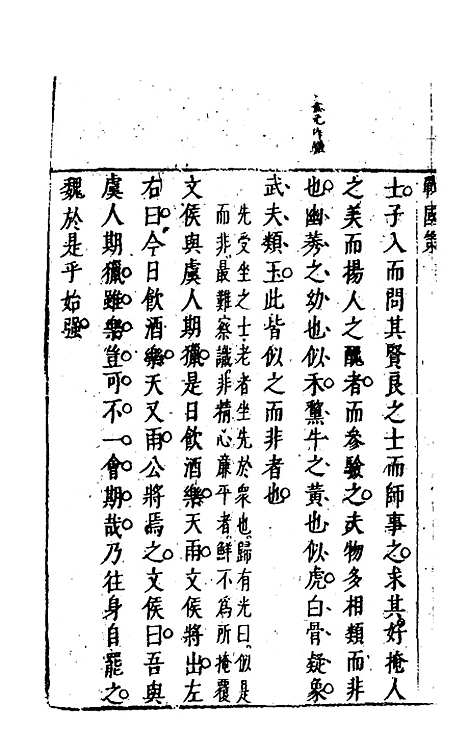 戰國策
士子入而問其賢良之士而師事之求其好掩人
之美而揚人之醜者而參驗之夫物多相類而非
也幽莠之幼也似禾驪牛之黃也似虎白骨疑象
武夫類玉此皆似之而非者也
先受坐之士老者坐先於衆也歸有光曰似是
而非最難察識非精心廉平者鮮不爲所掩覆
文侯與虞人期獵是日飲酒樂天雨文侯將出左
右曰今日飲酒樂天又雨公將焉之文侯曰吾與
虞人期獵雖樂豈可不一會期哉乃往身自罷之
魏於是乎始强